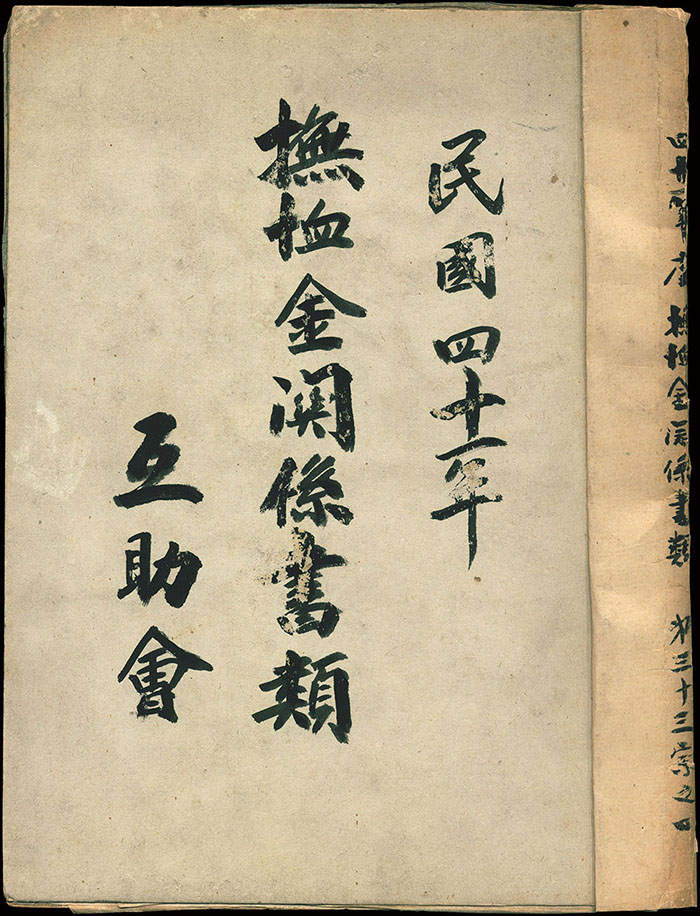 四十一年度 撫恤金関係書類 第三十三宗之四
民國四十一年
撫恤金関係書類
互助會